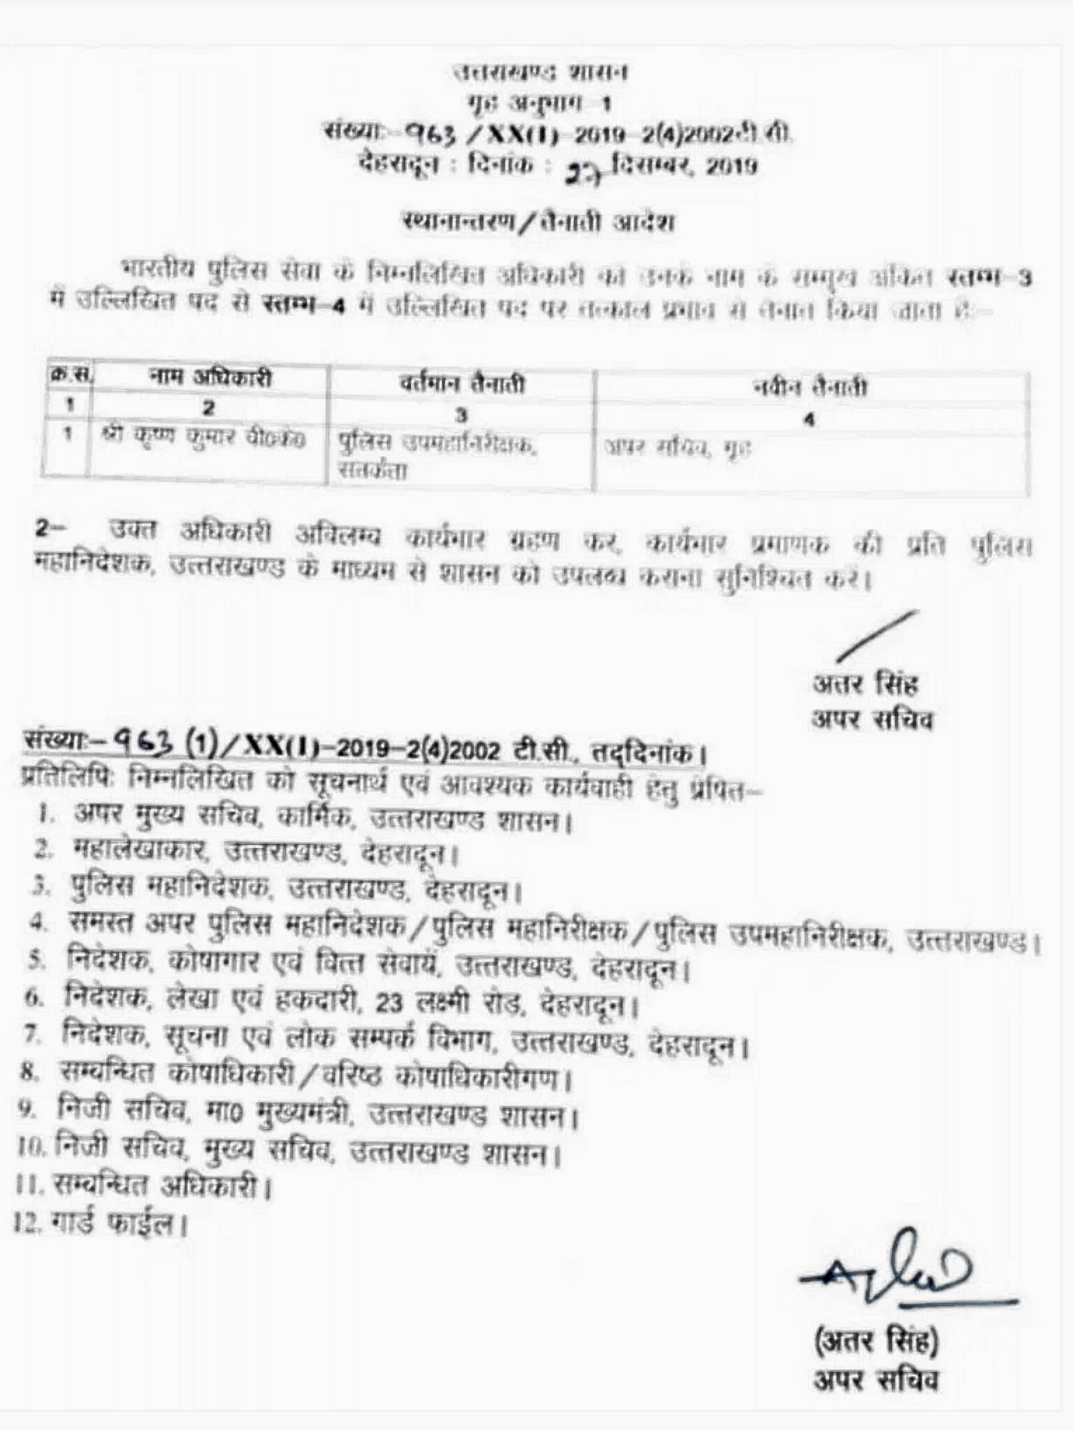 उत्तराखण्ड शासन
गृह अनुभाग-1
संख्या:-963/XX(1)-2019-2(4)2002टी.सी.
देहरादून : दिनांक : 27 दिसम्बर, 2019
स्थानान्तरण/तैनाती आदेश
भारतीय पुलिस सेवा के निम्नलिखित अधिकारी को उनके नाम के सम्मुख अंकित स्तम्भ-3
में उल्लिखित पद से स्तम्भ-4 में उल्लिखित पद पर तत्काल प्रभाव से तैनात किया जाता है:-
क्र.सं. नाम अधिकारी वर्तमान तैनाती नवीन तैनाती
1 2 3 4
1 श्री कृष्ण कुमार वी0के0 पुलिस उपमहानिरीक्षक, अपर सचिव, गृह
सतर्कता
2- उक्त अधिकारी अविलम्ब कार्यभार ग्रहण कर, कार्यभार प्रमाणक की प्रति पुलिस
महानिदेशक, उत्तराखण्ड के माध्यम से शासन को उपलब्ध कराना सुनिश्चित करें।
अतर सिंह
अपर सचिव
संख्या:-963 (1)/XX(1)-2019-2(4)2002 टी.सी., तद्दिनांक।
प्रतिलिपिः निम्नलिखित को सूचनार्थ एवं आवश्यक कार्यवाही हेतु प्रेषित-
1. अपर मुख्य सचिव, कार्मिक, उत्तराखण्ड शासन।
2. महालेखाकार, उत्तराखण्ड, देहरादून।
3. पुलिस महानिदेशक, उत्तराखण्ड, देहरादून।
4. समस्त अपर पुलिस महानिदेशक/पुलिस महानिरीक्षक/पुलिस उपमहानिरीक्षक, उत्तराखण्ड।
5. निदेशक, कोषागार एवं वित्त सेवायें, उत्तराखण्ड, देहरादून।
6. निदेशक, लेखा एवं हकदारी, 23 लक्ष्मी रोड, देहरादून।
7. निदेशक, सूचना एवं लोक सम्पर्क विभाग, उत्तराखण्ड, देहरादून।
8. सम्बन्धित कोषाधिकारी/वरिष्ठ कोषाधिकारीगण।
9. निजी सचिव, मा0 मुख्यमंत्री, उत्तराखण्ड शासन।
10. निजी सचिव, मुख्य सचिव, उत्तराखण्ड शासन।
11. सम्बन्धित अधिकारी।
12. गार्ड फाईल।
(अतर सिंह)
अपर सचिव